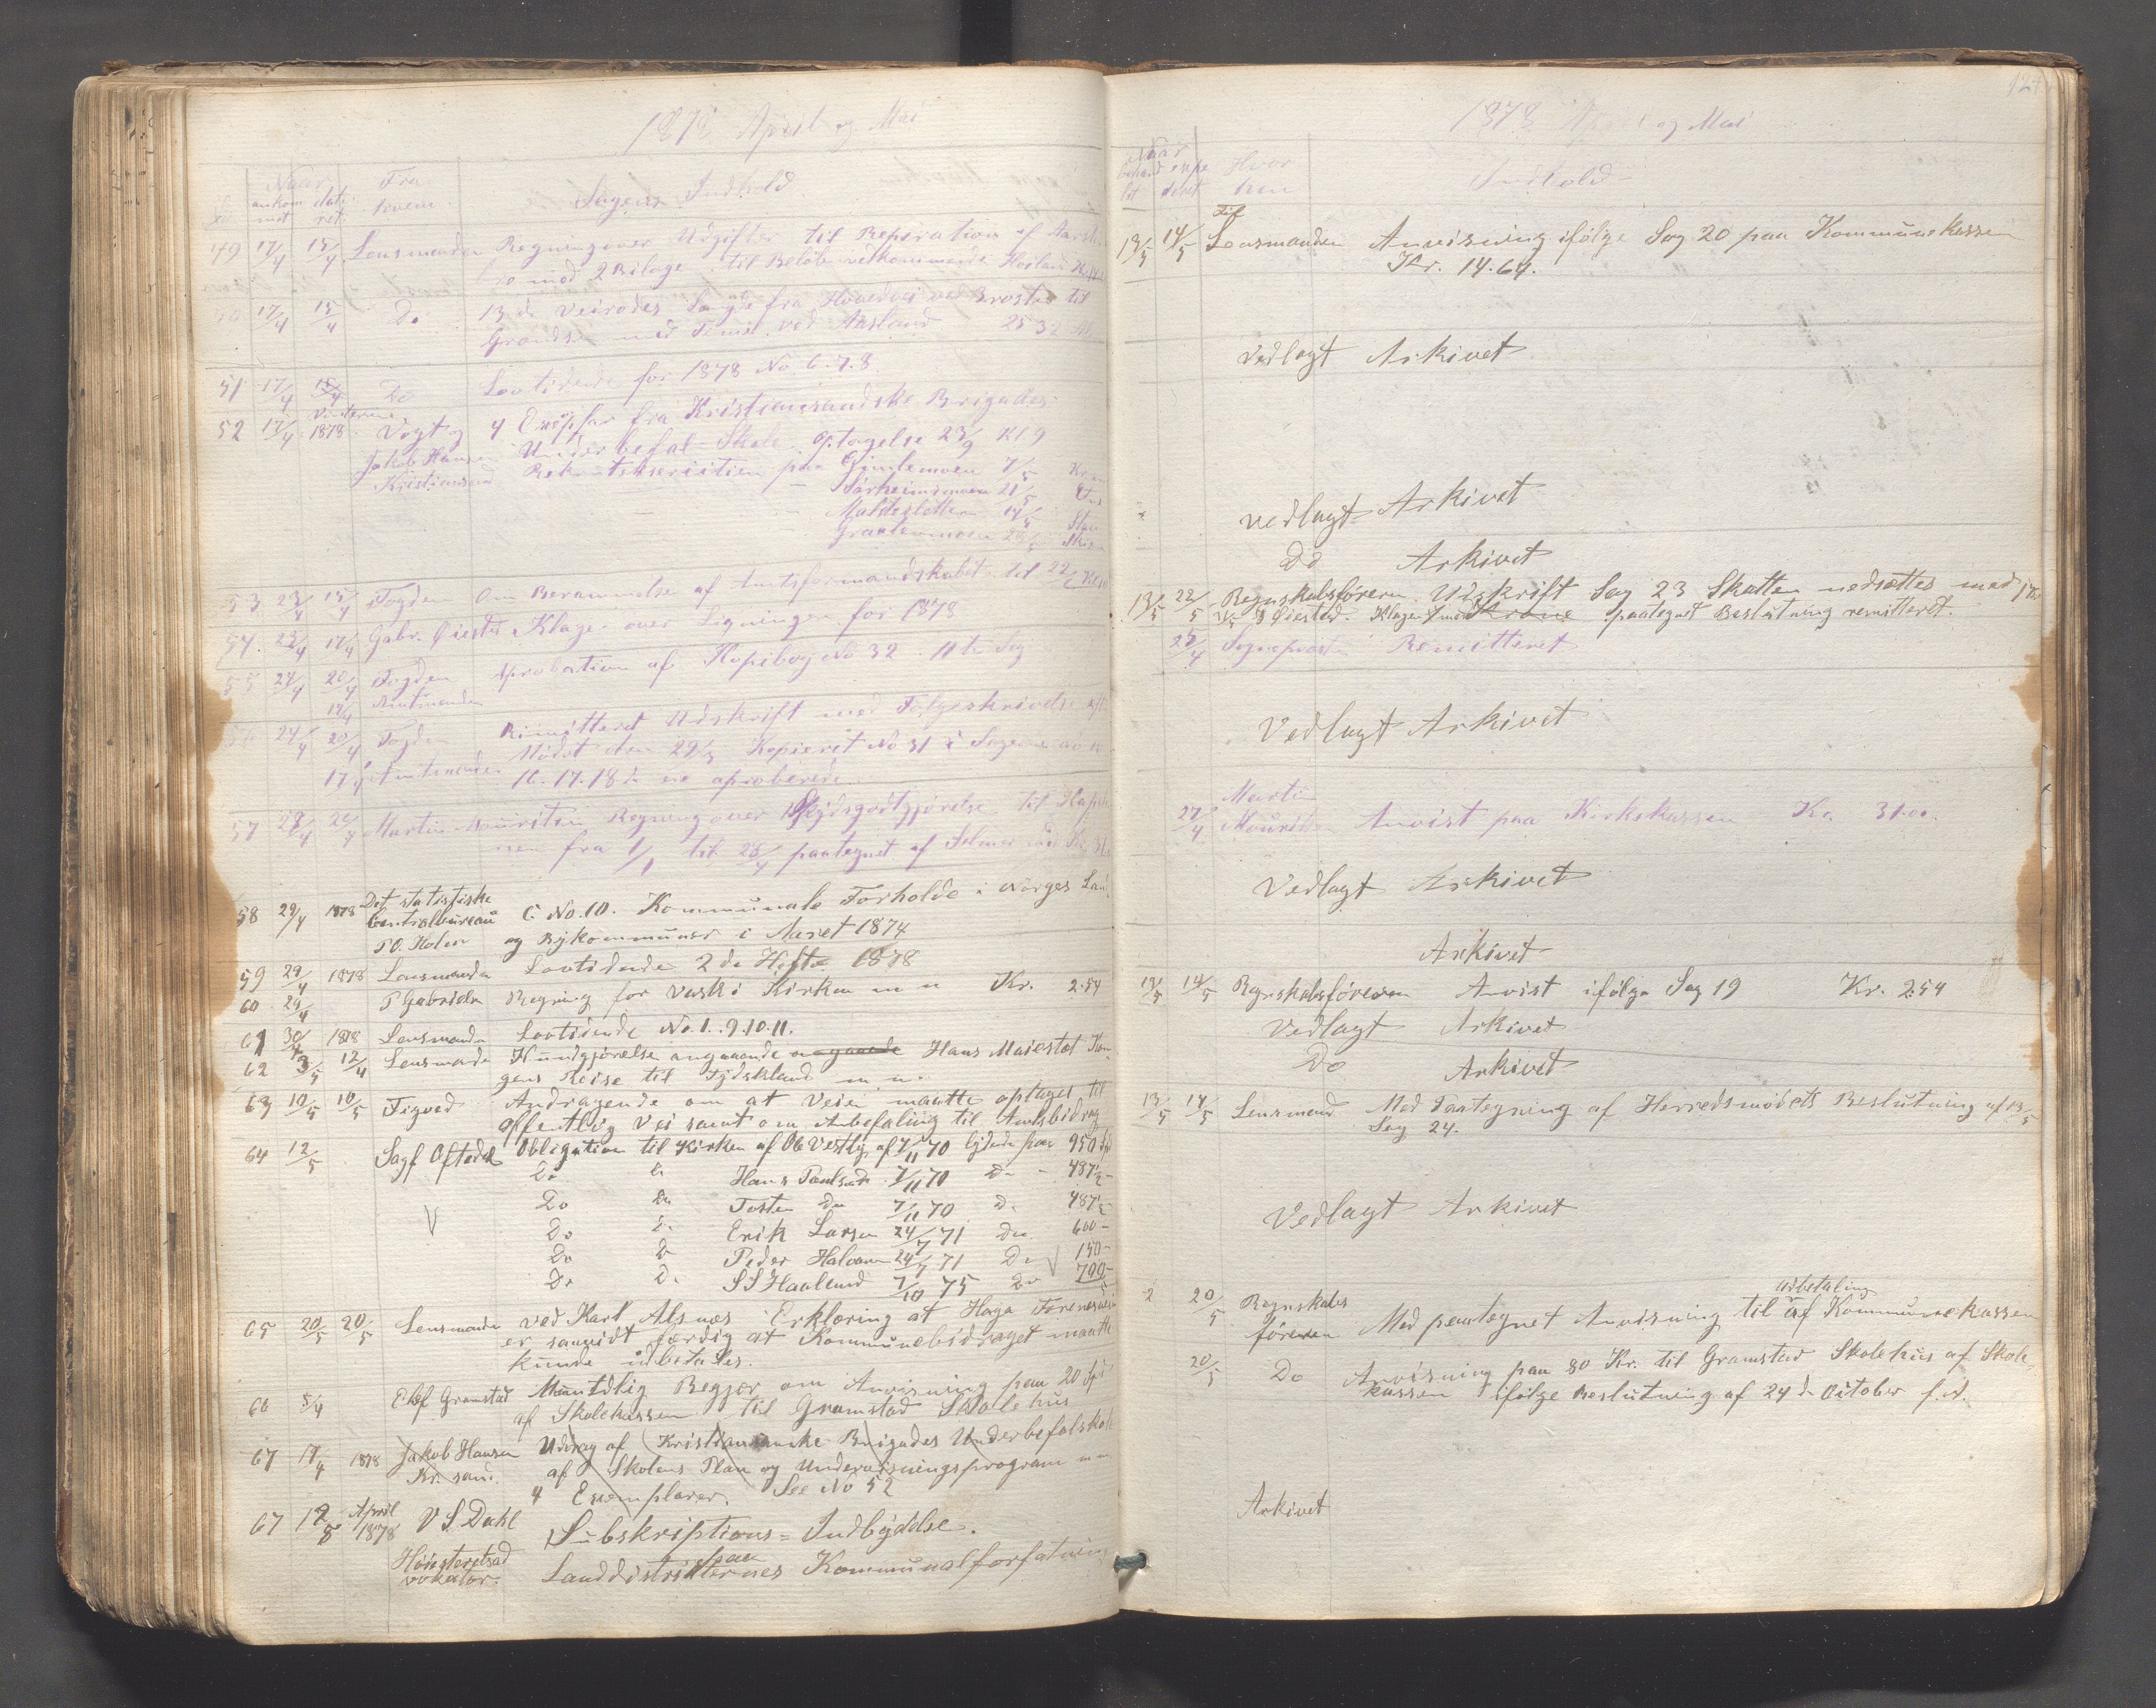 1878 April og Mai
Naar Fra
ankom mot date ret. hvem Sagens Indhold
49 17/4 15/4 Lensmanden Regning over Udgifter til Reperation af
bro med 2 Bilage til Beløb vedkommende
17/4 15/4 Do 13 de Veirodes Længde fra Hovedvei ved til
Grændsen med ved Aasland 2532
51 17/4 15/4 Do Lovtidende for 1878 No 6.7.8.
52 17/4 Vinteren 1878 Vogt og 4 Exeplar fra Kristiansandske Brigades
Jakob Hansen Underbefal-Skole optagelse 23/9 Kl 9
Kristiansand paa Gimlemoen 7/5
21/5
14/5
53 23/4 15/4 Fogden Om Berammelse af Amtsformandskabet til 22/6
54. 23/4 17/4 Gabr. Øiestad Klager over Ligningen for 1878
55 24/4 20/4 Fogden Aprobation af Kopibog No 32 11te Sag
19/4 Amtmanden
56 24/4 20/4 Fogden Rimitteret Udskrift med Følgeskrivelse
17/4 Amtmanden Mødet den 29/3 Kopieret No 31 i Sagerne
16.17.18 de ere aproberede
57 28/4 Martin Mouritsen Regning over Skydsgodtgjørelse til
fra 1/1 til 28/4 paategnet af
58 29/4 1878 Det statistiske
Centralbureau C No. 10. Kommunale Forholde i Norges Land
og Bykommuner i Aaret 1874
59 29/4 1878 Lensmanden Lovtidende 2 de Hefte 1878
60 29/4 P Gabrielsen Regning for Vask i Kirken m n Kr. 2.54
61 30/4 1878 Lensmanden Lovtidende No. 1. 9.10.11.
62 3/5 12/4 Lensmande Kundgjørelse angaaende angaaende Hans Maiestæt Kon-
gens Reise til Tydskland m n.
63 10/5 10/5 Tigved Andragende om at Veien maatte optages til
offentlig Vei samt om Anbefaling til Amtsbidrag
64 12/5 Sagf Oftedal Obligation til Kirken af Ole Vestly af 7/11 70 lydende paa 950 Sp
Do Do Hans Paulsen 7/11 70 Do - 487½ -
Do Do Tosten Do 7/11 70 Do 487½
Do Do Erik Larsen 24/7 71 Do 600 -
Do Do Peder Halvorsen 24/7 71 Do 150 -
Do Do S S Haaland 7/10 75 Do 700 -
65 20/5 20/5 Lensmanden ved Karl Alsnæs Erklæring at Haga
er saavidt færdig at Kommunebidraget maatte
kunde udbetales.
66 5/4 Elef Gramstad Muntdlig Begjær om Anvisning paa 20 Spd
af Skolekassen til Gramstad Skolehus
67 17/4 1878 Jakob Hansen Udtog af Kristiansanske Brigades Underbefalskole
Kr. sand. af Skolens Plan og Undervisningsprogram m m
4 Exemplarer. See No 52
67 12/5 April 1878 V S. Dahl Subskriptions=Indbydelse.
Høiesteretsad
vokator. paa Landdistrikternes Kommunalforfatning
124
1878 April og Mai
Naar
behand let expe deret Hvor hen Indhold
13/5 14/5 Til Lensmanden Anvisning ifølge Sag 20 paa Kommunekassen
Kr. 14.64.
Vedlagt Arkivet
vedlagt Arkivet
Do Arkivet
13/5 22/5 Regnskabsføreren Udskrift Sag 23 Skatten nedsættes med 1 Kr
Øiestad. Klagen med Krone paategnet Beslutning remitteret.
24/4 Sogneprest Remitteret
Vedlagt Arkivet
Martin
27/4 Mourits Anvist paa Kirkekassen Kr. 31.00.
Vedlagt Arkivet
Arkivet
13/5 14/5 Regnskabsføreren Anvist ifølge Sag 19 Kr. 2.54
Vedlagt Arkivet
Do Arkivet
13/5 14/5 Lensmand Med Paategning af Herredsmødets Beslutning af 13/5
Sag 24.
Vedlagt Arkivet
20/5 Regnskabs udbetaling
føreren Med paategnet Anvisning til af Kommunekassen
20/5 Do Anvisning paa 80 Kr. til Gramstad Skolehus af Skole-
kassen ifølge Beslutning af 24 de October f. A.
Arkivet